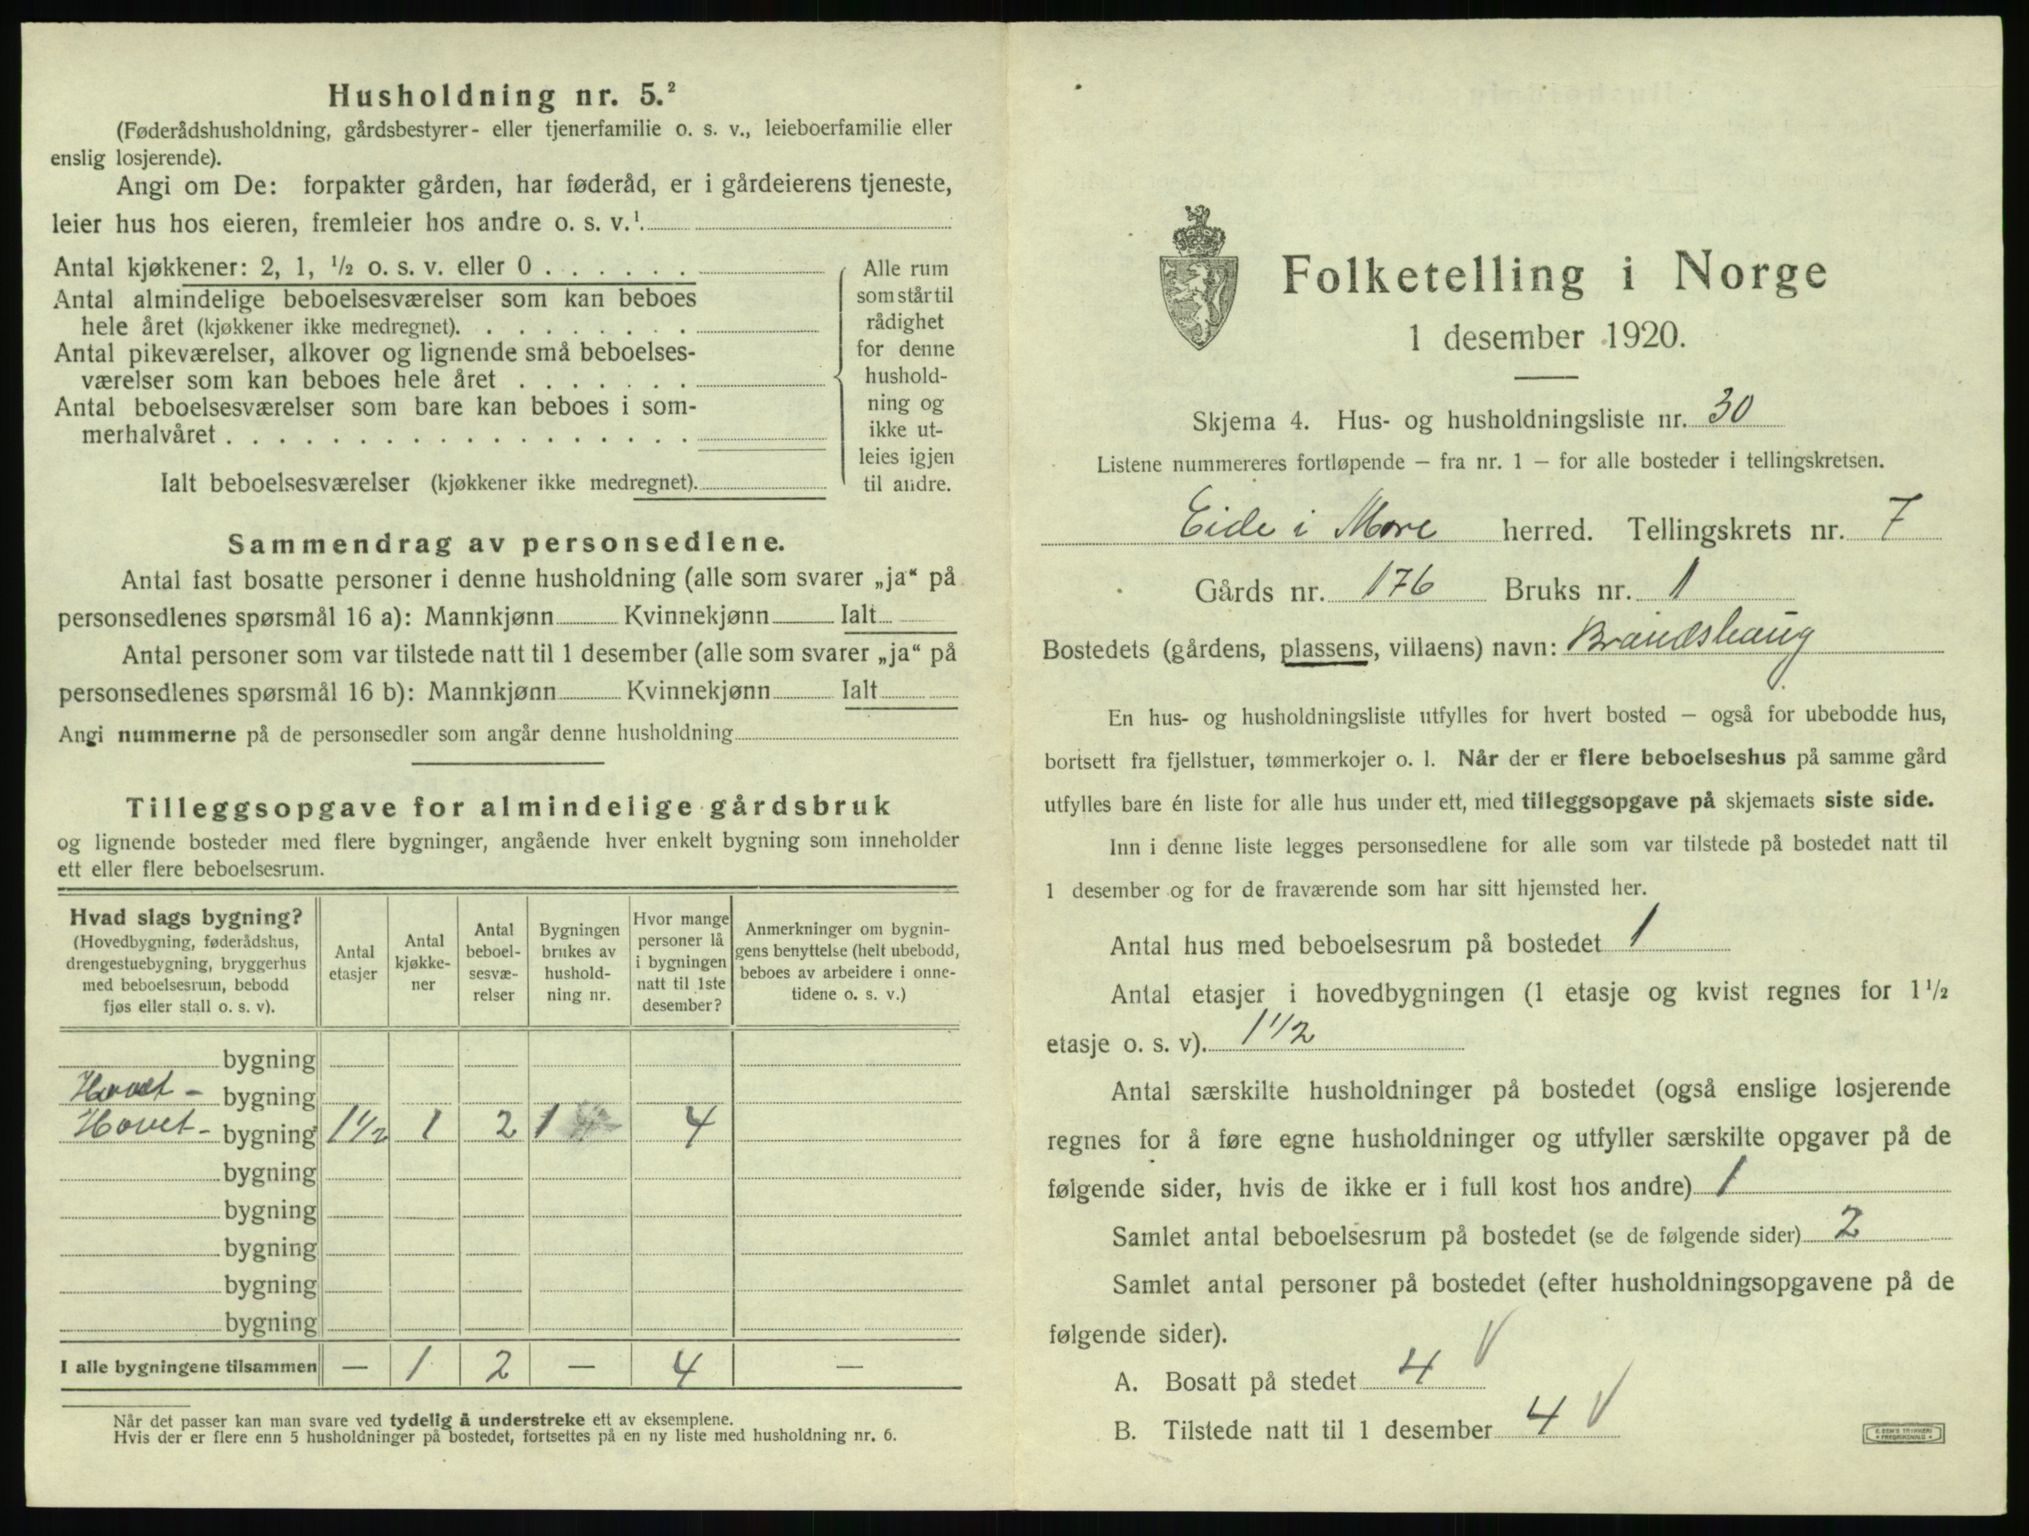 Husholdning nr. 5.²
(Føderådshusholdning, gårdsbestyrer- eller tjenerfamilie o. s. v., leieboerfamilie eller
enslig losjerende).
Angi om De: forpakter gården, har føderåd, er i gårdeierens tjeneste,
leier hus hos eieren, fremleier hos andre o. s. v.¹
Antal kjøkkener: 2, 1, ½ o. s. v. eller 0
Antal almindelige beboelsesværelser som kan beboes
hele året (kjøkkener ikke medregnet).
Antal pikeværelser, alkover og lignende små beboelses-
værelser som kan beboes hele året
Antal beboelsesværelser som bare kan beboes i som-
merhalvåret
Ialt beboelsesværelser (kjøkkener ikke medregnet).
Alle rum
som står til
rådighet
for denne
hushold-
ning og
ikke ut-
leies igjen
til andre.
Sammendrag av personsedlene.
Antal fast bosatte personer i denne husholdning (alle som svarer „ja“ på
personsedlenes spørsmål 16 a): Mannkjønn Kvinnekjønn Ialt
Antal personer som var tilstede natt til 1 desember (alle som svarer „ja“ på
personsedlenes spørsmål 16 b): Mannkjønn Kvinnekjønn Ialt
Angi nummerne på de personsedler som angår denne husholdning
Tilleggsopgave for almindelige gårdsbruk
og lignende bosteder med flere bygninger, angående hver enkelt bygning som inneholder
ett eller flere beboelsesrum.
Hvad slags bygning?
(Hovedbygning, føderådshus,
drengestuebygning, bryggerhus
med beboelsesrum, bebodd
fjøs eller stall o. s. v).
Antal
etasjer
Antal
kjøkke-
ner
Antal
beboel-
sesvæ-
relser
Bygningen
brukes av
hushold-
ning nr.
Hvor mange
personer lå
i bygningen
natt til 1ste
desember?
Anmerkninger om bygnin-
gens benyttelse (helt ubebodd,
beboes av arbeidere i onne-
tidene o. s. v.)
bygning
Hovet- bygning
Hovet- bygning 1½ 1 2 1 4
bygning
bygning
bygning
bygning
bygning
I alle bygningene tilsammen — 1 2 — 4 —
Når det passer kan man svare ved tydelig å understreke ett av eksemplene.
Hvis der er flere enn 5 husholdninger på bostedet, fortsettes på en ny liste med husholdning nr. 6.
Folketelling i Norge
1 desember 1920.
Skjema 4. Hus- og husholdningsliste nr. 30
Listene nummereres fortløpende — fra nr. 1 — for alle bosteder i tellingskretsen.
Eide i Møre herred. Tellingskrets nr. 7
Gårds nr. 176 Bruks nr. 1
Bostedets (gårdens, plassens, villaens) navn: Brandshaug
En hus- og husholdningsliste utfylles for hvert bosted — også for ubebodde hus,
bortsett fra fjellstuer, tømmerkojer o. l. Når der er flere beboelseshus på samme gård
utfylles bare én liste for alle hus under ett, med tilleggsopgave på skjemaets siste side.
Inn i denne liste legges personsedlene for alle som var tilstede på bostedet natt til
1 desember og for de fraværende som har sitt hjemsted her.
Antal hus med beboelsesrum på bostedet 1
Antal etasjer i hovedbygningen (1 etasje og kvist regnes for 1½
etasje o. s. v). 1½
Antal særskilte husholdninger på bostedet (også enslige losjerende
regnes for å føre egne husholdninger og utfyller særskilte opgaver på de
følgende sider, hvis de ikke er i full kost hos andre) 1
Samlet antal beboelsesrum på bostedet (se de følgende sider) 2
Samlet antal personer på bostedet (efter husholdningsopgavene på de
følgende sider).
A. Bosatt på stedet 4
B. Tilstede natt til 1 desember 4